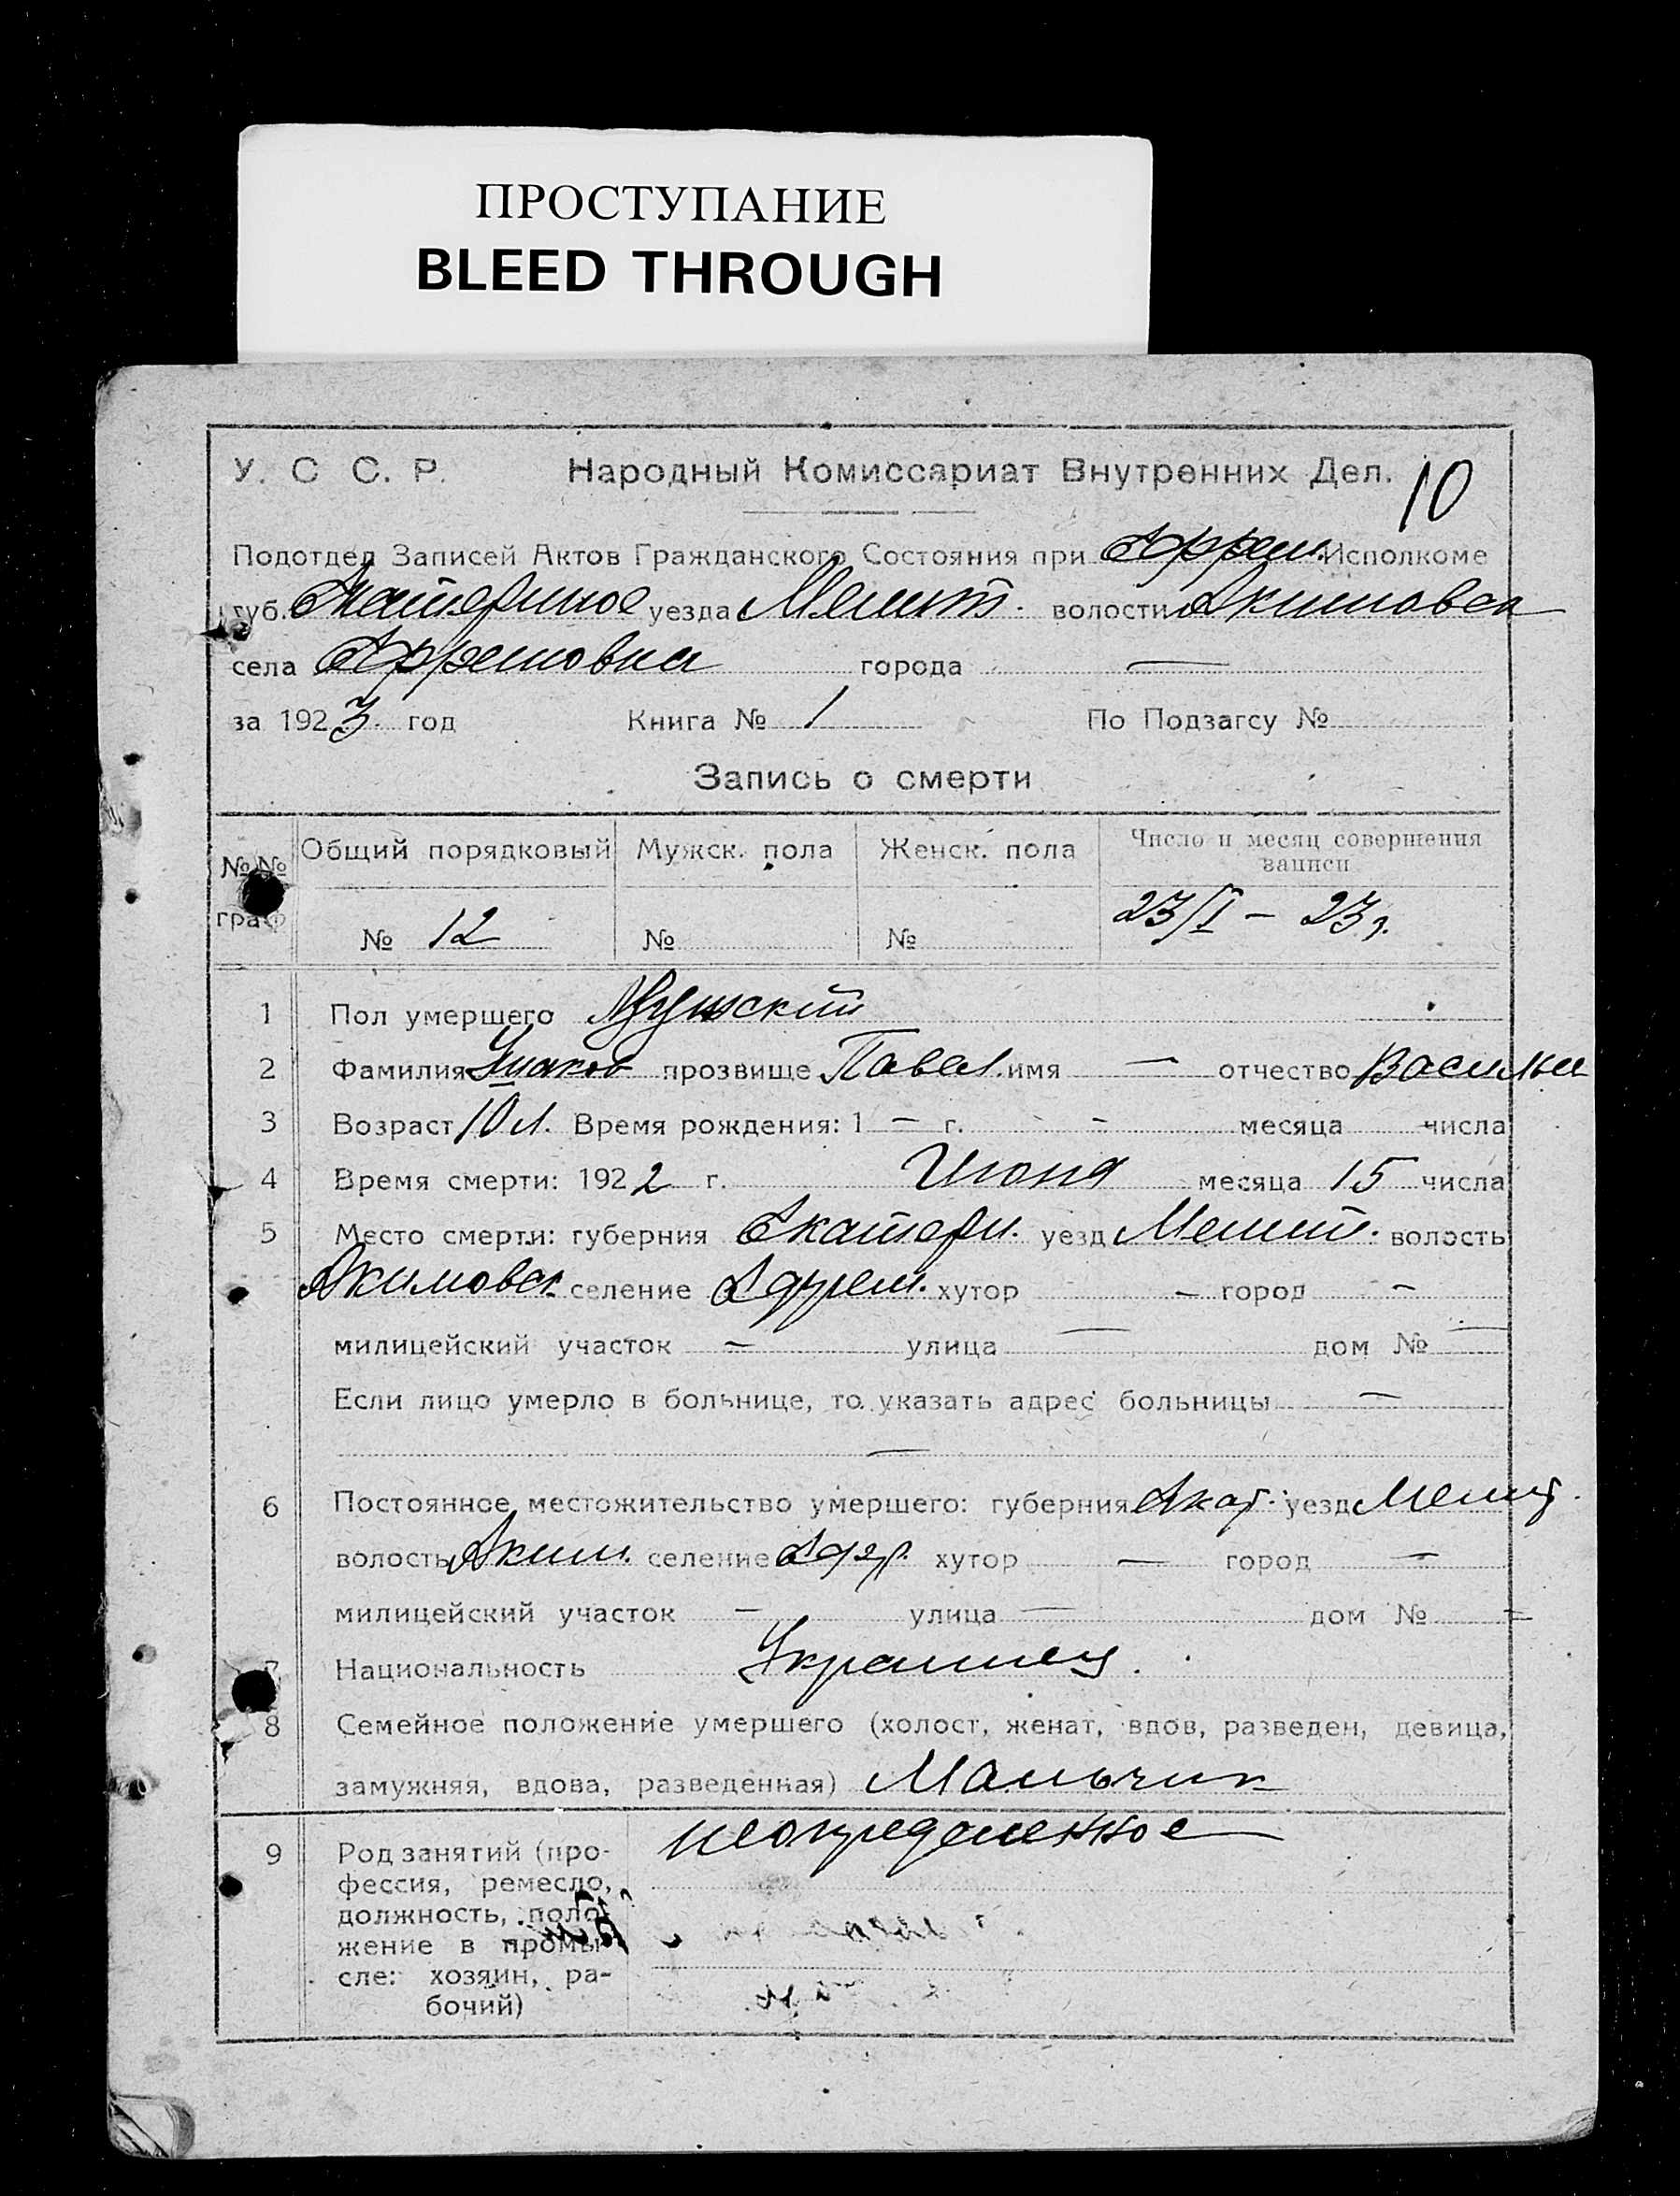 ПРОСТУПАНИЕ
BLEED THROUGH
У. С С. Р. Народный Комиссариат Внутренних Дел. 10
Подотдел Записей Актов Гражданского Состояния при Ефрем. Исполкоме
губ. Екатеринос уезда Мелит. волости Акимовск
села Ефремовка города —
за 1923 год Книга № 1 По Подзагсу №
Запись о смерти
№№ граф Общий порядковый Мужск. пола Женск. пола Число и месяц совершения
записи
№ 12 № № 23/I – 23 г.
1 Пол умершего Мужский
2 Фамилия Ушаков прозвище Павел. имя — отчество Василье
3 Возраст 10 л. Время рождения: 1 – г. – месяца числа
4 Время смерти: 1922 г. Июня месяца 15 числа
5 Место смерти: губерния Екатери. уезд Мелит. волость
Акимовск. селение Ефрем. хутор – город –
милицейский участок – улица — дом № —
Если лицо умерло в больнице, то указать адрес больницы —
—
6 Постоянное местожительство умершего: губерния Екат. уезд Мелит.
волость Аким. селение Ефр. хутор — город —
милицейский участок – улица — дом № –
7 Национальность Украинец.
8 Семейное положение умершего (холост, женат, вдов, разведен, девица,
замужняя, вдова, разведенная) Мальчик
9 Род занятий (про- неопределенное
фессия, ремесло,
должность, поло-
жение в промы-
сле: хозяин, ра-
бочий)